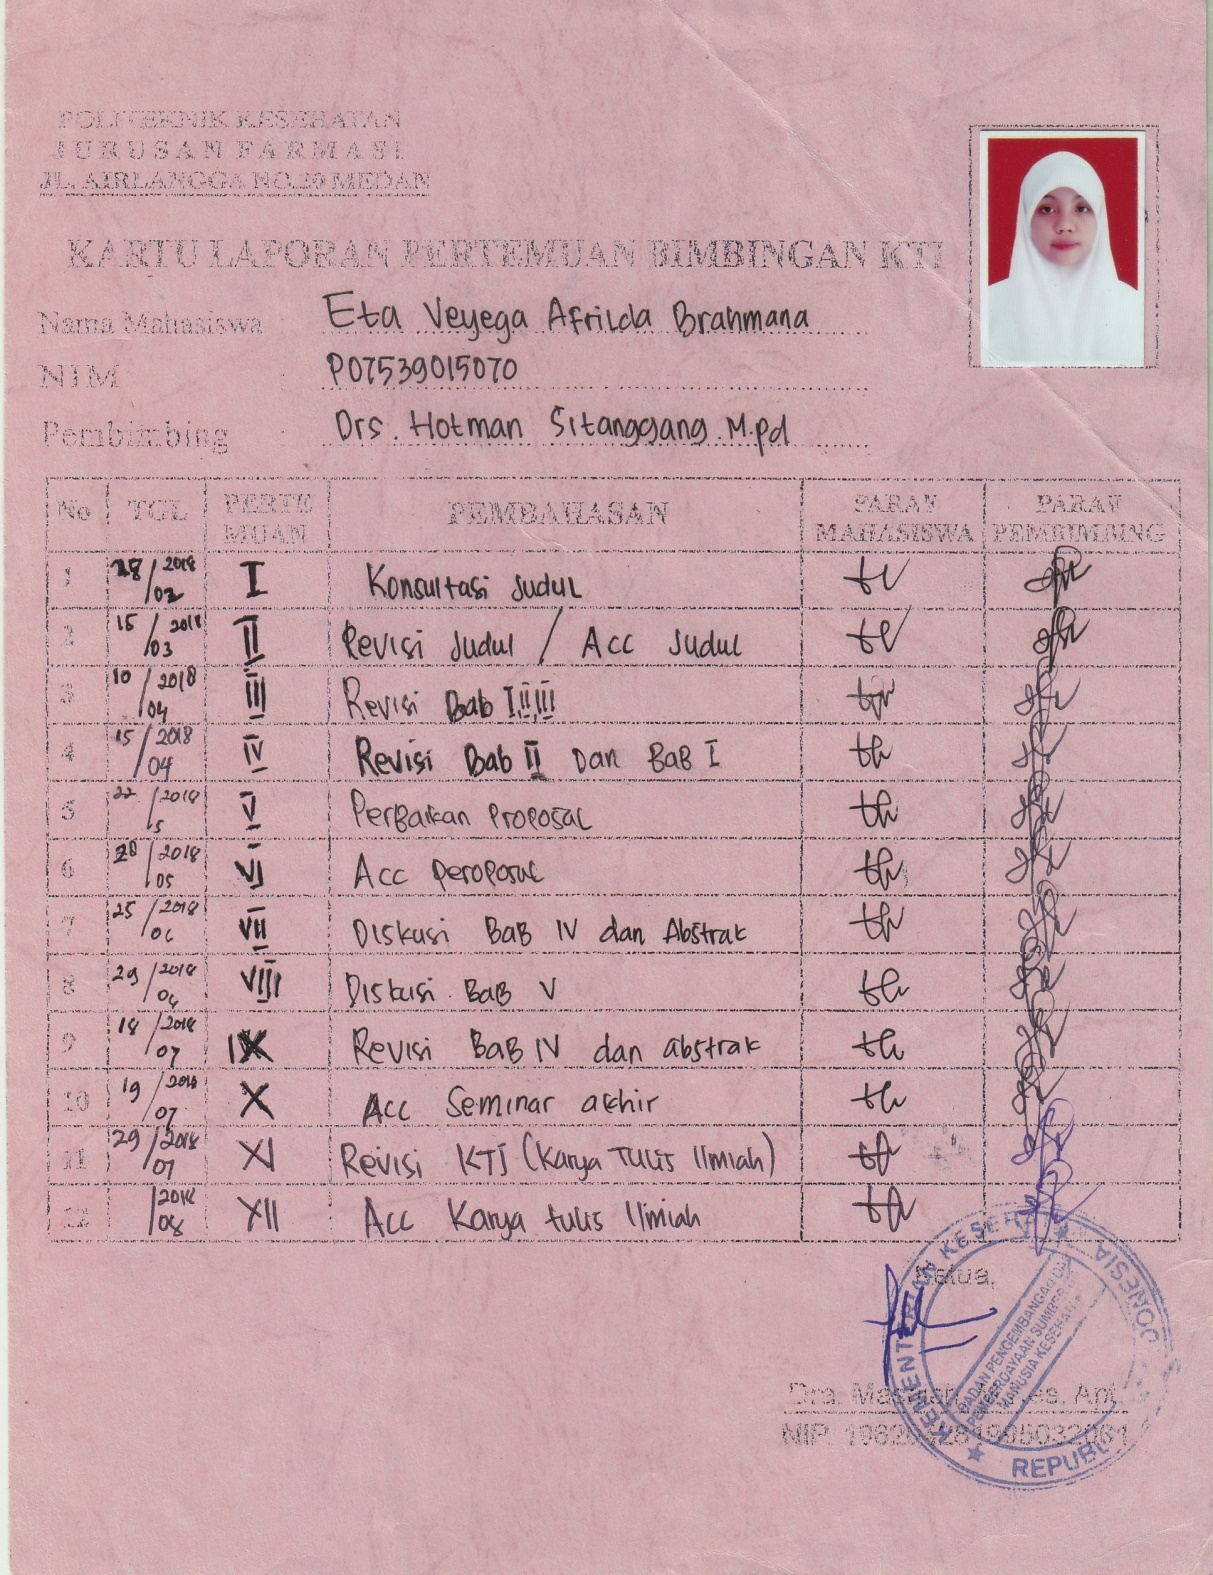 POLITEKNIK KESEHATAN
JURUSAN FARMASI
JL. AIRLANGGA NO.20 MEDAN
KARTU LAPORAN PERTEMUAN BIMBINGAN KTI
Nama Mahasiswa : Eta Veyega Afrilda Brahmana
NIM : P07539015070
Pembimbing : Drs. Hotman Sitanggang M.pd
No TGL PERTE MUAN PEMBAHASAN PARAF MAHASISWA PARAF PEMBIMBING
1 28/02 2018 I Konsultasi Judul
2 15/03 2018 II Revisi Judul / Acc Judul
3 10/04 2018 III Revisi Bab I,II,III
4 15/04 2018 IV Revisi Bab II Dan Bab I
5 22/5 2018 V Perbaikan Proposal
6 28/05 2018 VI Acc Peroposal
7 25/06 2018 VII Diskusi Bab IV dan Abstrak
8 29/06 2018 VIII Diskusi Bab V
9 18/07 2018 IX Revisi Bab IV dan abstrak
10 19/07 2018 X Acc Seminar akhir
11 29/07 2018 XI Revisi KTI (Karya Tulis Ilmiah)
12 /08 2018 XII Acc Karya tulis Ilmiah
Ketua,
KEMENTERIAN KESEHA
DONESIA
BADAN PENGEMBANGAN DA
PEMBERDAYAAN SUMBER
MANUSIA KESEHATA
REPUBLI
Dra. Apt
NIP.